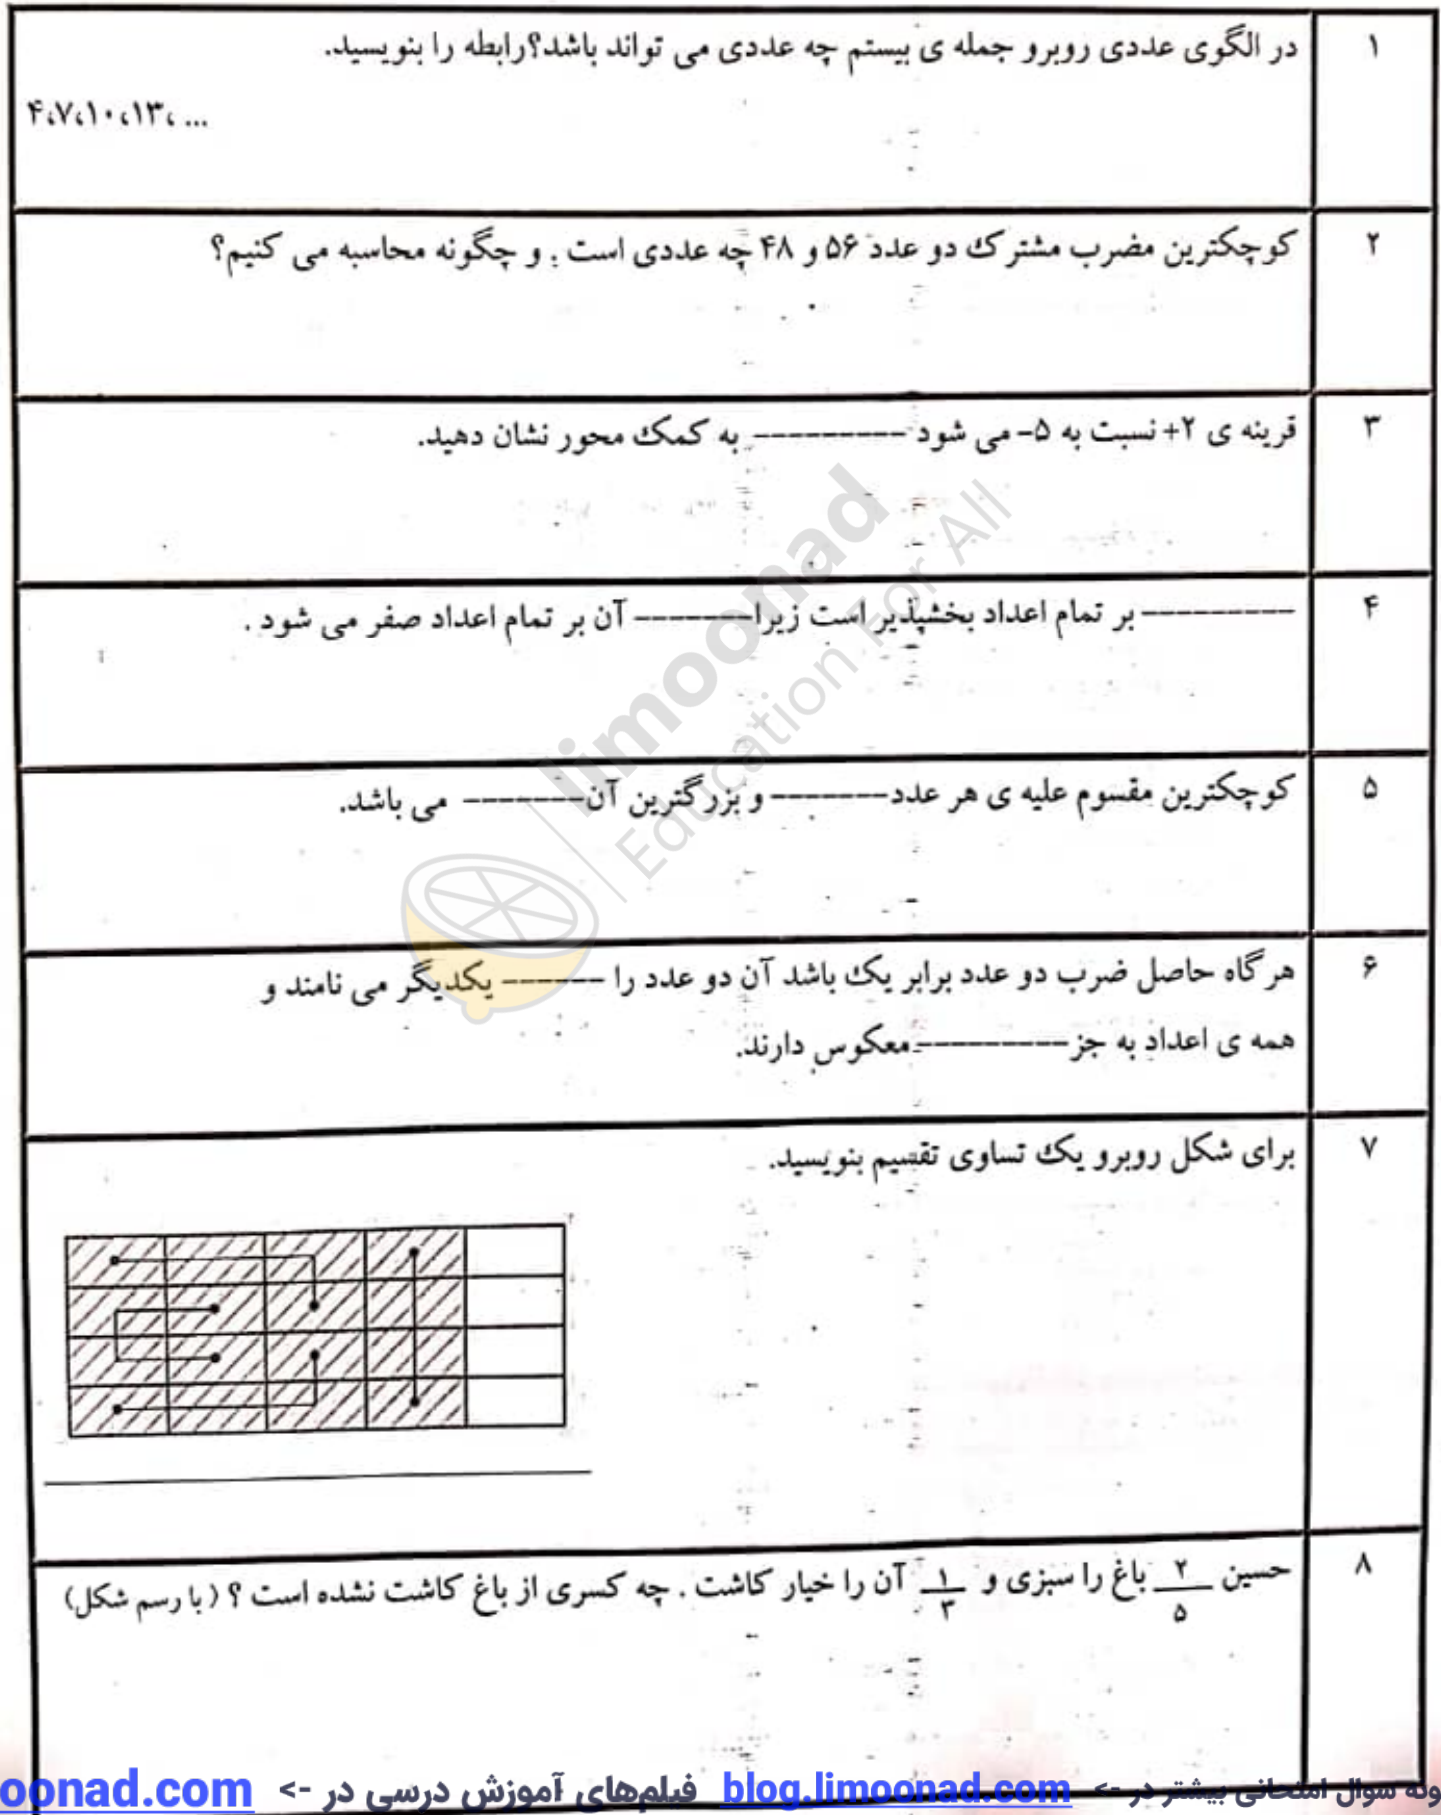 ۱
در الگوی عددی روبرو جمله ی بیستم چه عددی می تواند باشد؟رابطه را بنویسید.
۴،۷،۱۰،۱۳، ...
۲
کوچکترین مضرب مشترک دو عدد ۵۶ و ۴۸ چه عددی است . و چگونه محاسبه می کنیم؟
۳
قرینه ی ۲+ نسبت به ۵- می شود ---------- به کمک محور نشان دهید.
۴
---------- بر تمام اعداد بخشپذیر است زیرا-------- آن بر تمام اعداد صفر می شود .
۵
کوچکترین مقسوم علیه ی هر عدد-------- و بزرگترین آن-------- می باشد.
۶
هر گاه حاصل ضرب دو عدد برابر یک باشد آن دو عدد را ------- یکدیگر می نامند و
همه ی اعداد به جز---------- معکوس دارند.
۷
برای شکل روبرو یک تساوی تقسیم بنویسید.
۸
حسین ۲/۵ باغ را سبزی و ۱/۳ آن را خیار کاشت . چه کسری از باغ کاشت نشده است ؟ ( با رسم شکل)
limoonad
Education For All
ونه سوال امتحانی بیشتر در -> blog.limoonad.com فیلم‌های آموزش درسی در -> oonad.com